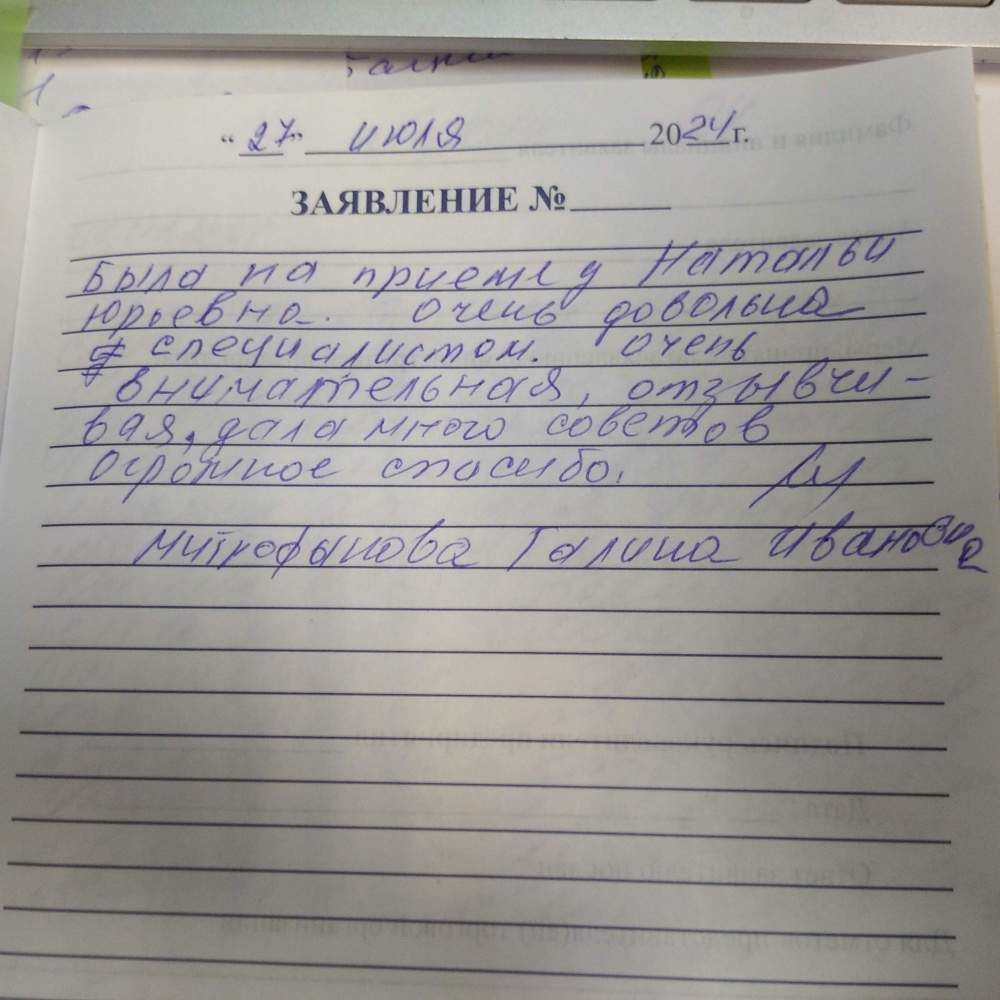 "27" июля 2024 г.
ЗАЯВЛЕНИЕ №
Была на приеме у Натальи
Юрьевна. Очень довольна
специалистом. Очень
внимательная, отзывчи-
вая, дала много советов
Огромное спасибо.
Митрофанова Галина Ивановна